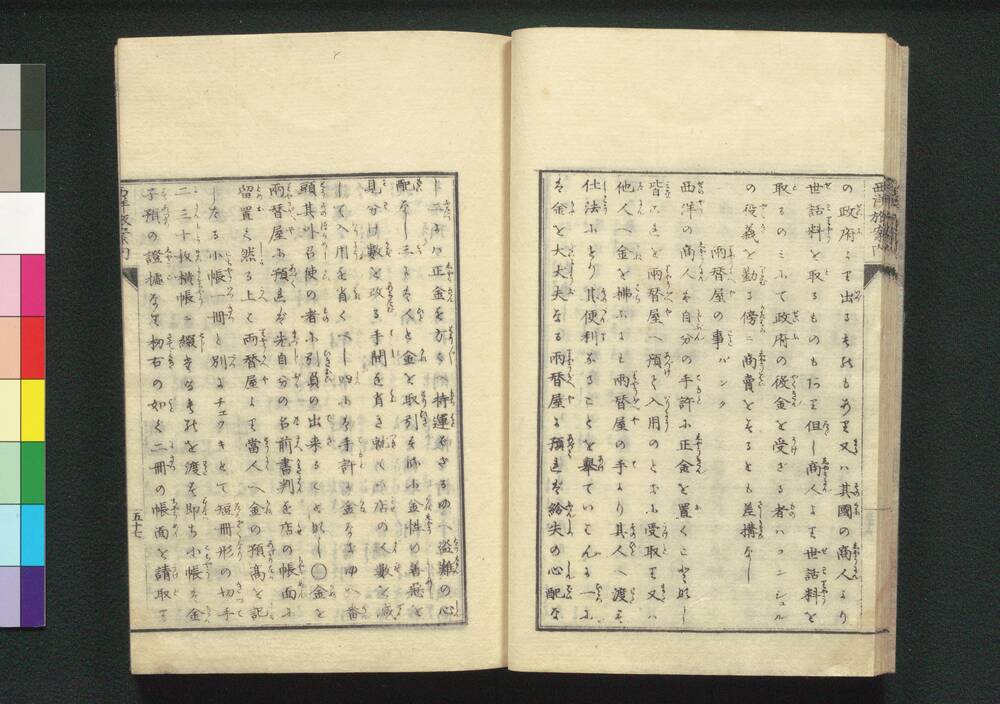 の政府より出るものもあり又ハ其國の商人より
世話料を取るものもあり但し商人より世話料を
取るのミにて政府の役金を受ざる者ハコンシユル
の役義を勤る傍ニ商賣をするとも差構なし
両替屋の事 バンク
西洋の商人は自分の手許に正金を置くこと
皆これを両替屋へ預け入用のときに受取り又ハ
他人へ金を拂ふにも両替屋の手より其人へ渡す
仕法にて其便利なることを擧ていてんに一に
は金を大丈夫なる両替屋に預れば紛失の心配な
し二にハ正金を方々持運ばざるゆへ盗難の心
配なし三にハ人と金を取引する に金性の善悪を
見分け数を改る手間を省き 店の人數を減
して入用を省くべし四にハ手許に金なきゆへ番
頭其外召使の者に引負の出来ること なし〇金を
両替屋に預れば先自分の名前書判を店の帳面に
留置く然る上にて両替屋より當人へ金の預高を記
したる小帳一冊と別にチエツキとて短冊形の切手
二三十枚横帳ニ綴たるものを渡す即ち小帳は金
子預の證據なり扨右の如く二冊の帳面を請取て
五十七